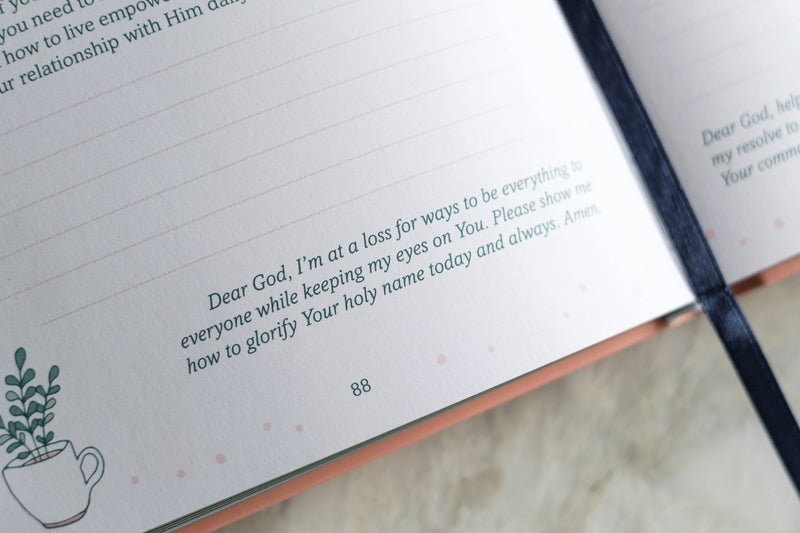 you need to
how to live empower
ur relationship with Him daily
Dear God, I'm at a loss for ways to be everything to
everyone while keeping my eyes on You. Please show me
how to glorify Your holy name today and always. Amen.
88
Dear God, help
my resolve to
Your comma